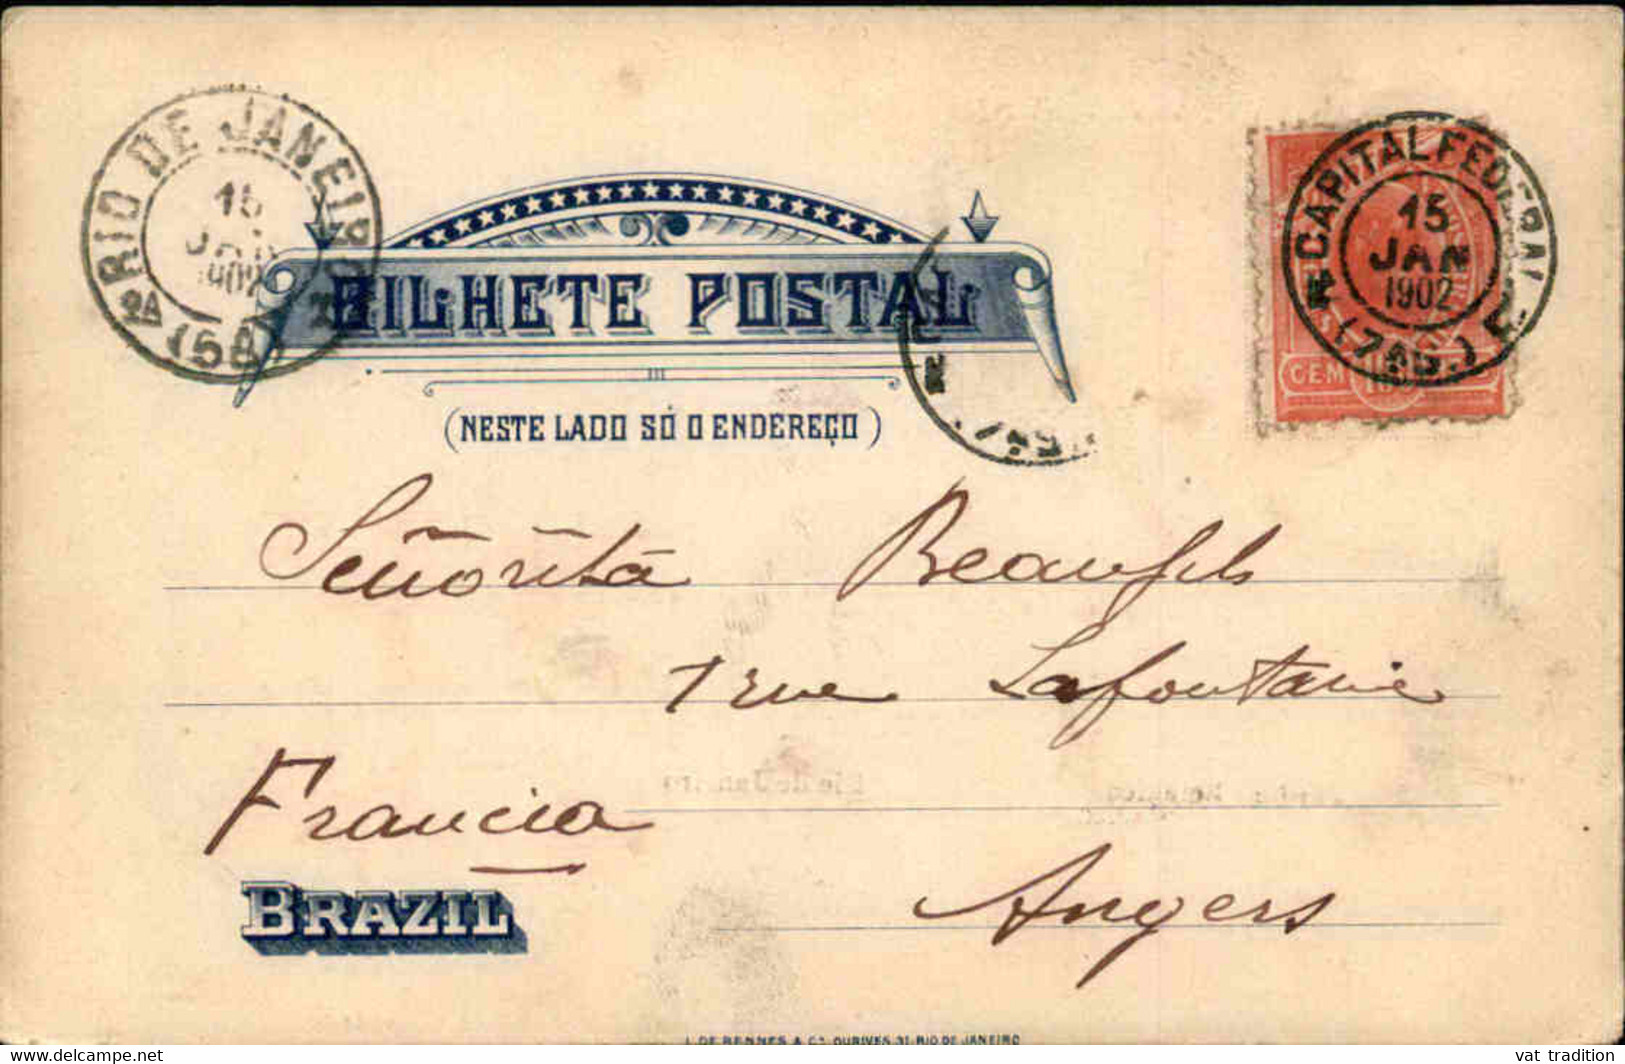 RIO DE JANEIRO
15
JAN
1902
(5A)
CAPITAL FEDERAL
15
JAN
1902
CEM
BILHETE POSTAL
(NESTE LADO SÓ O ENDEREÇO)
Señorita Beaufils
1 rue Lafontaine
Francia
Angers
BRAZIL
J. DE RENNES & Cª. OURIVES, 31-RIO DE JANEIRO
vat tradition